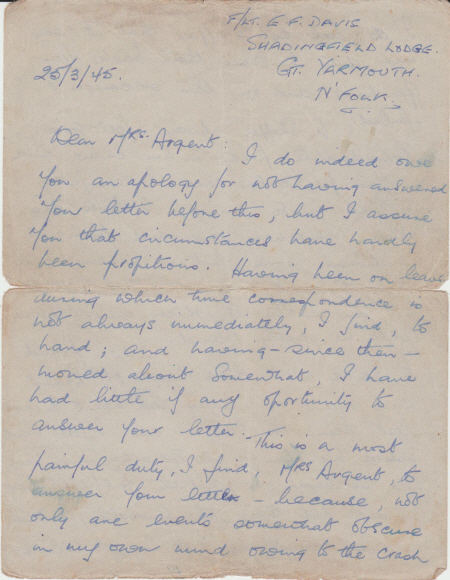 F/LT. E. F. DAVIS
SHADINGFIELD LODGE.
GT. YARMOUTH.
N'FOLK.
25/3/45.
Dear Mrs. Argent: I do indeed owe
you an apology for not having answered
your letter before this, but I assure
you that circumstances have hardly
been propitious. Having been on leave
during which time correspondence is
not always immediately, I find, to
hand; and having - since then -
moved about somewhat, I have
had little if any oportunity to
answer your letter. This is a most
painful duty, I find, Mrs Argent, to
answer your letter - because, not
only are events somewhat obscure
in my own mind owing to the crash